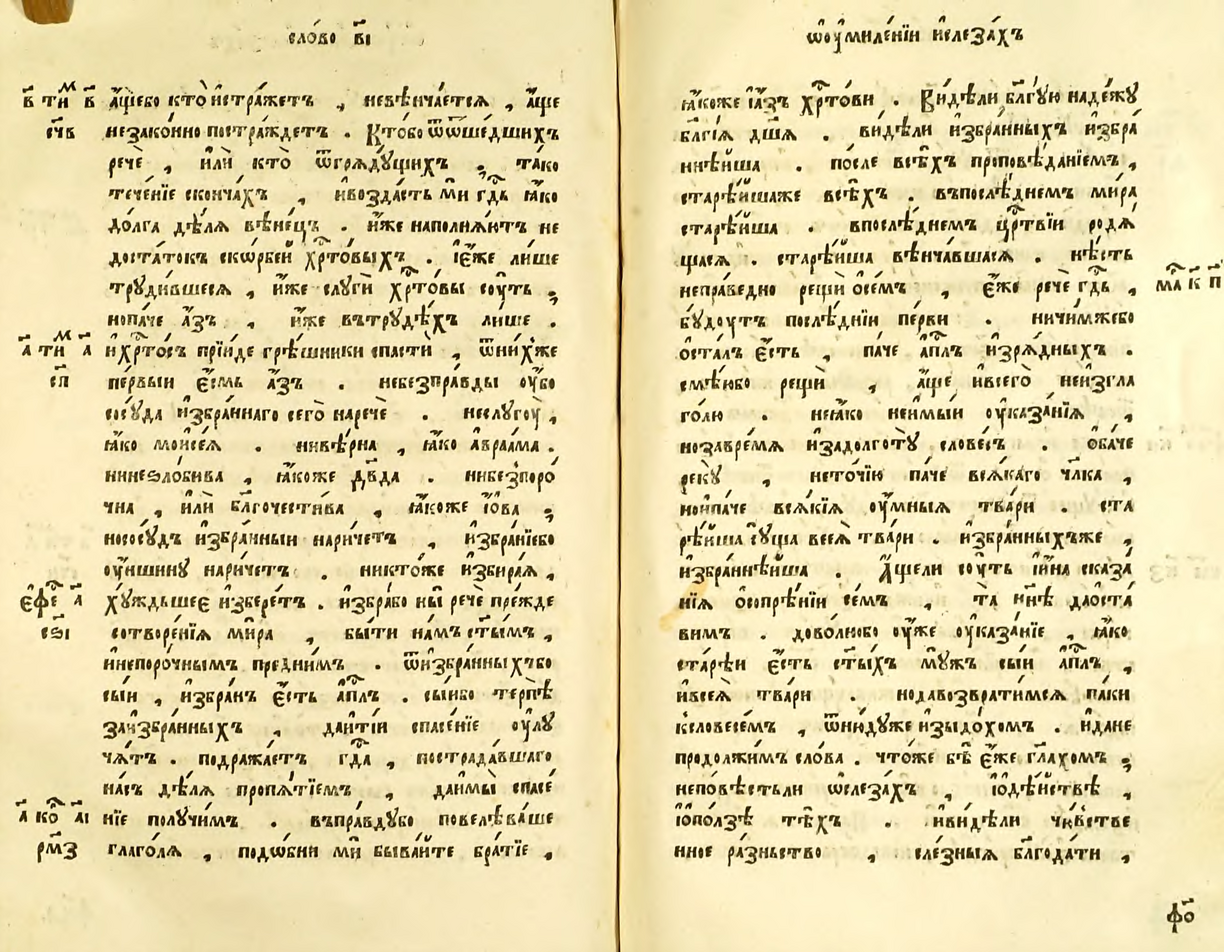 сло́во в҃і
в҃ ти м в҃ а҆́щебо кто̀ и҆стра́жетъ , невѣнча́етсѧ , а҆́ще
сч҃в незако́нно постра́ждетъ . Кто́бо ѿѿше́дшихъ
речѐ , и҆лѝ кто̀ ѿгрѧдꙋ́щихъ , та́ко
тече́нїе сконча́хъ , ивозда́сть мѝ гдⷭ҇ь ꙗ҆́ко
до́лга дѣ́лѧ вѣне́цъ . и҆́же наполнѧ́итъ не
доста́токъ ско́рбей хрⷭ҇то́выхъ . і҆є҆́же ли́ше
трꙋди́вшесѧ , и҆́же слꙋги̑ хрⷭ҇то́вы сꙋ́ть ;
нопа́че а҆́зъ , и҆́же вътрꙋдѣ́хъ ли́ше .
а҃ ти м а҃ и҆хрⷭ҇то́съ прїи́де грѣ́шники спастѝ , ѿни́хже
сп҃ пе́рвыи є҆́смь а҆́зъ . небезпра́вды ᲂу҆́бо
сосꙋ́да и҆збра́ннаго сего̀ наречѐ . неслꙋго́ꙋ ,
ꙗ҆́ко мои҆се́ѧ . нивѣ́рна , ꙗ҆́ко а҆враа́ма .
нинеѕло́бива , ꙗ҆́коже дв҃да . нибезпоро́
чна , и҆лѝ бл҃гочести́ва , ꙗ҆́коже і҆́ова ;
нососꙋ́дъ и҆збра́нныи нарича́етъ , и҆збра́нїебо
ᲂу҆́ишинꙋ нарича́етъ . никто́же и҆збира́ѧ ,
є҆фе с а҃ хꙋ́ждьшеє и҆збере́тъ . и҆збра́бо ны̀ речѐ пре́жде
сѕ҃і сотворе́нїѧ ми́ра , бы́ти на́мъ ст҃ы́мъ ,
и҆непоро́чнымъ предни́мъ . ѿи҆збра́нныхъбо
сы́й , и҆збра́нъ є҆́сть а҆пⷭ҇лъ . сы́ибо терпѣ̀
заи҆збра́нныхъ , даи҆ті́и спасе́нїе ᲂу҆лꙋ
ча́тъ . подража́етъ гдⷭ҇а , пострада́вшаго
на́съ дѣ́лѧ пропѧ́тїемъ , даи҆мы̀ спасе́
а҃ ко р а҃і нїе полꙋ́чимъ . въпра́вдꙋбо повелѣва́ше
рм҃з глаго́лѧ , подо́бни мѝ быва́йте бра́тїе ,
ѡ҆ᲂу҆миле́нїи и҆слеза́хъ
ꙗ҆́коже і҆а҆́зъ хрⷭ҇то́ви . Ви́дѣли бл҃гꙋ́ю наде́жꙋ
бл҃гі́ѧ дш҃ѧ̀ . ви́дѣли и҆збра́нныхъ и҆збра́
ннѣ́йша . по́сле всѣ́хъ проповѣ́данїемъ ,
старѣ́йшаже всѣ́хъ . въпослѣ́днемъ ми́ра
старѣ́йша . впослѣ́днемъ црⷭ҇твїи родѧ́
щасѧ . старѣ́йша вѣнча́вшасѧ . нѣ́сть
непра́ведно рещѝ о҆се́мъ , є҆́же речѐ гдⷭ҇ь , ма с к п҃
бꙋ́дꙋтъ послѣ́днїи пе́рви . ничи́мжебо
оста́лъ є҆́сть , па́че а҆пⷭ҇лъ и҆зрѧ́дныхъ .
смѣ́юбо рещѝ , а҆́ще и҆всего̀ неи҆згла
го́лю . неꙗ҆́ко неи҆мы́й ᲂу҆каза́нїѧ ,
нозавре́мѧ и҆задолготꙋ̀ слове́съ . ѻ҆ба́че
рекꙋ̀ , нето́чїю па́че всѧ́каго чл҃ка ,
нои҆па́че всѧ́кїѧ ᲂу҆́мныѧ тва́ри . ста
рѣ́йша сꙋ́ща всеѧ̀ тва́ри . и҆збра́нныхъже ,
и҆збра́ннѣйша . А҆́щели сꙋ́ть и҆и҆на сказа́
нїѧ ѻ҆сопрѣ́нїи се́мъ , та̀ нн҃ѣ даѡ҆ста́
вимъ . дово́лнобо ᲂу҆́же ᲂу҆каза́нїе , ꙗ҆́ко
старѣ́и є҆́сть ст҃ы́хъ мꙋ́жъ сы́й а҆пⷭ҇лъ ,
и҆всеѧ̀ тва́ри . нодавозврати́мсѧ па́ки
ксловесе́мъ , ѿню́дꙋже и҆зыдо́хомъ . и҆дане
продолжи́мъ сло́ва . что́же бѣ̀ є҆́же гл҃ахомъ ;
неповѣ́стьли ѡ҆слеза́хъ , і҆одѣ́йствѣ ,
і҆опо́лзѣ тѣ́хъ . и҆ви́дѣли чю́вьстве
нное ра́зньство , сле́зныѧ бл҃года́ти ,
фо҃